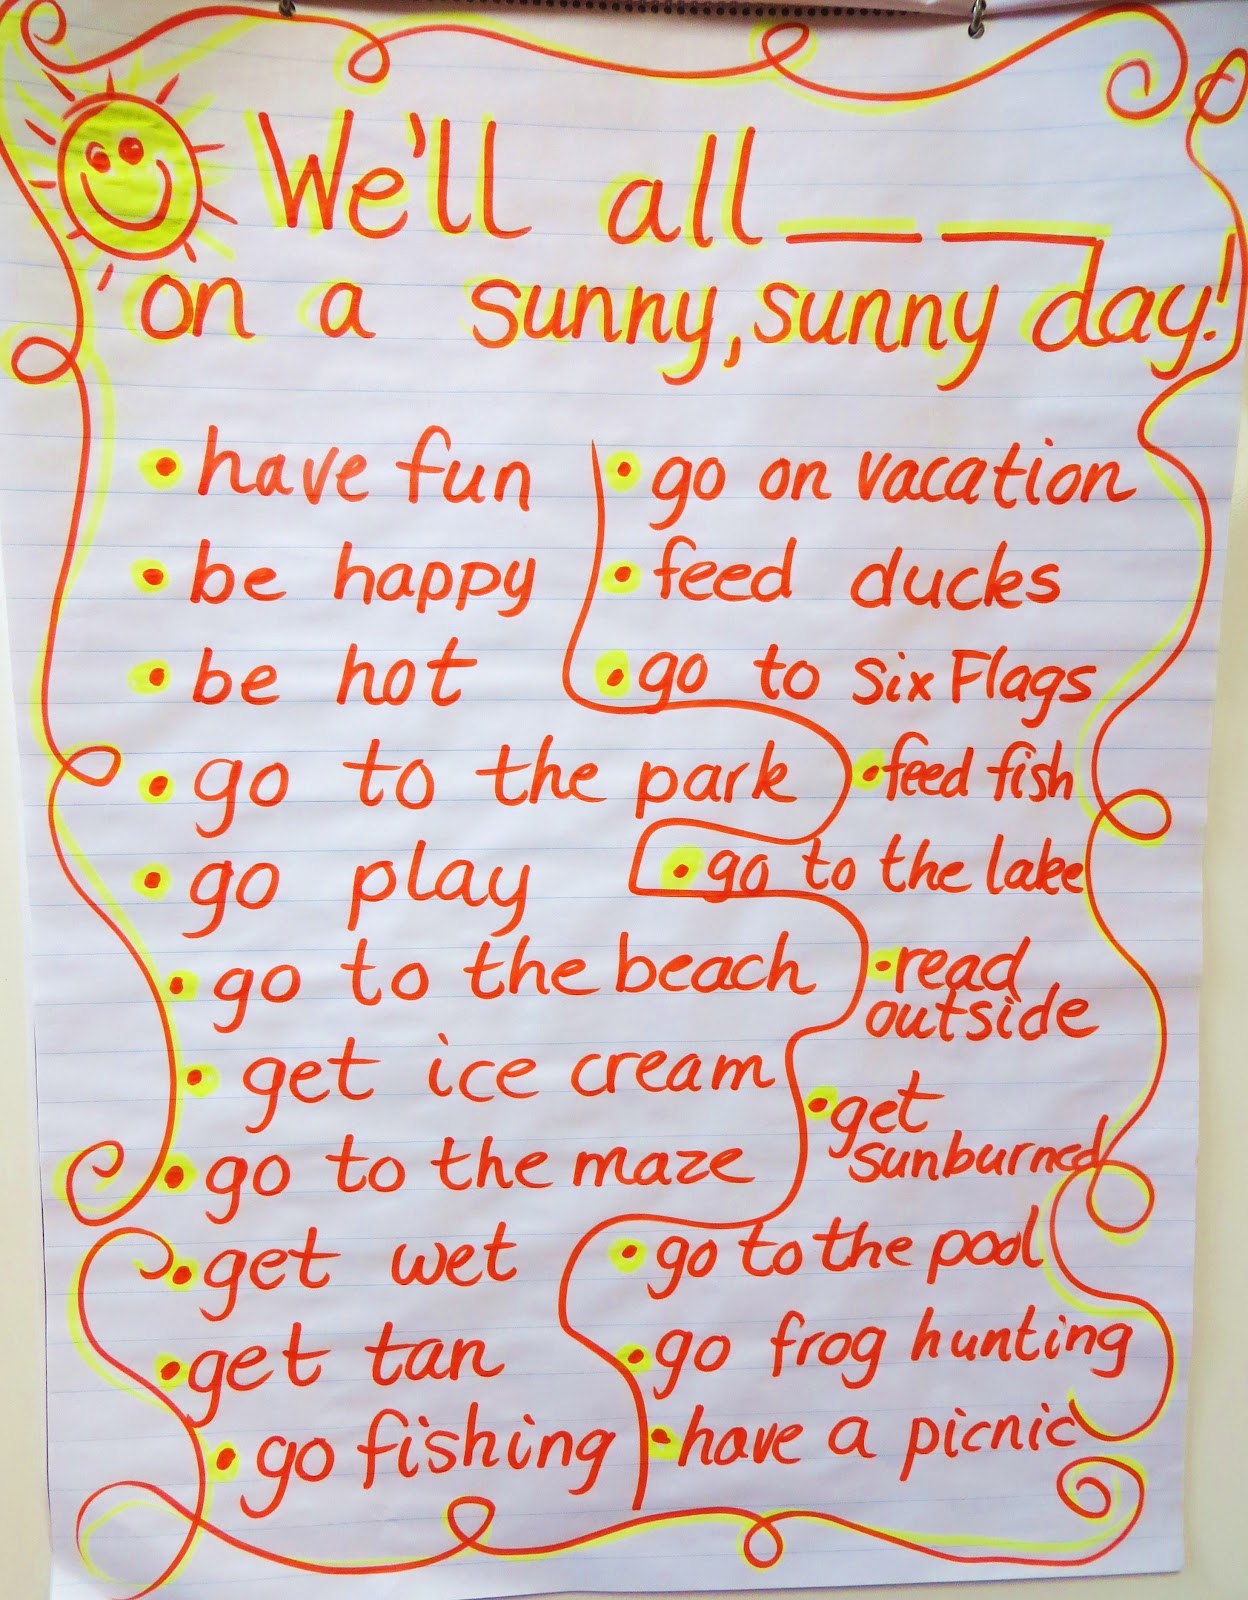 We'll all __ __
on a sunny, sunny day!
• have fun
• be happy
• be hot
• go to the park
• go play
• go to the beach
• get ice cream
• go to the maze
• get wet
• get tan
• go fishing
• go on vacation
• feed ducks
• go to Six Flags
• feed fish
• go to the lake
• read
outside
• get
sunburned
• go to the pool
• go frog hunting
• have a picnic